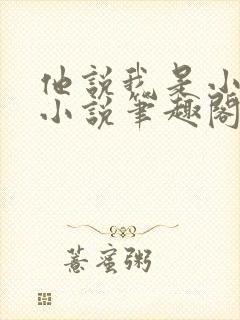 他說我是小
小說筆趣閣
薏蜜粥